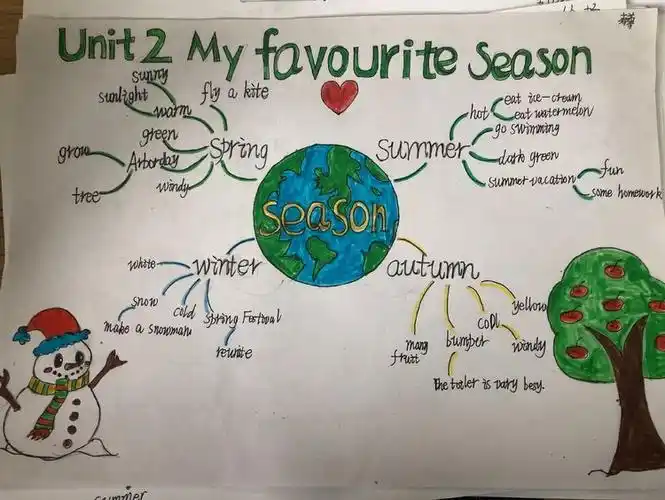 Unit 2 My favourite season
sunny
sunlight
warm
fly a kite
green
grow
Arborday
tree
windy
Spring
summer
hot
eat ice-cream
eat watermelon
go swimming
dark green
summer vacation
fun
some homework
season
winter
white
snow
make a snowman
cold
Spring Festival
reunite
autumn
many
fruit
bumper
The toiler is vary besy.
cool
yellow
windy
summer